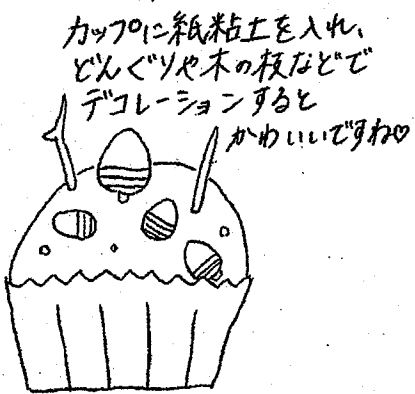 カップに紙粘土を入れ、
どんぐりや木の枝などで
デコレーションすると
かわいいですね♡